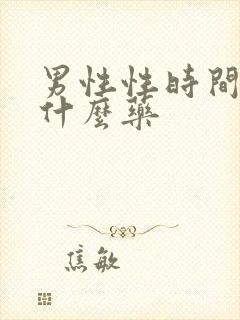 男性性時間
什麼藥
焦敏